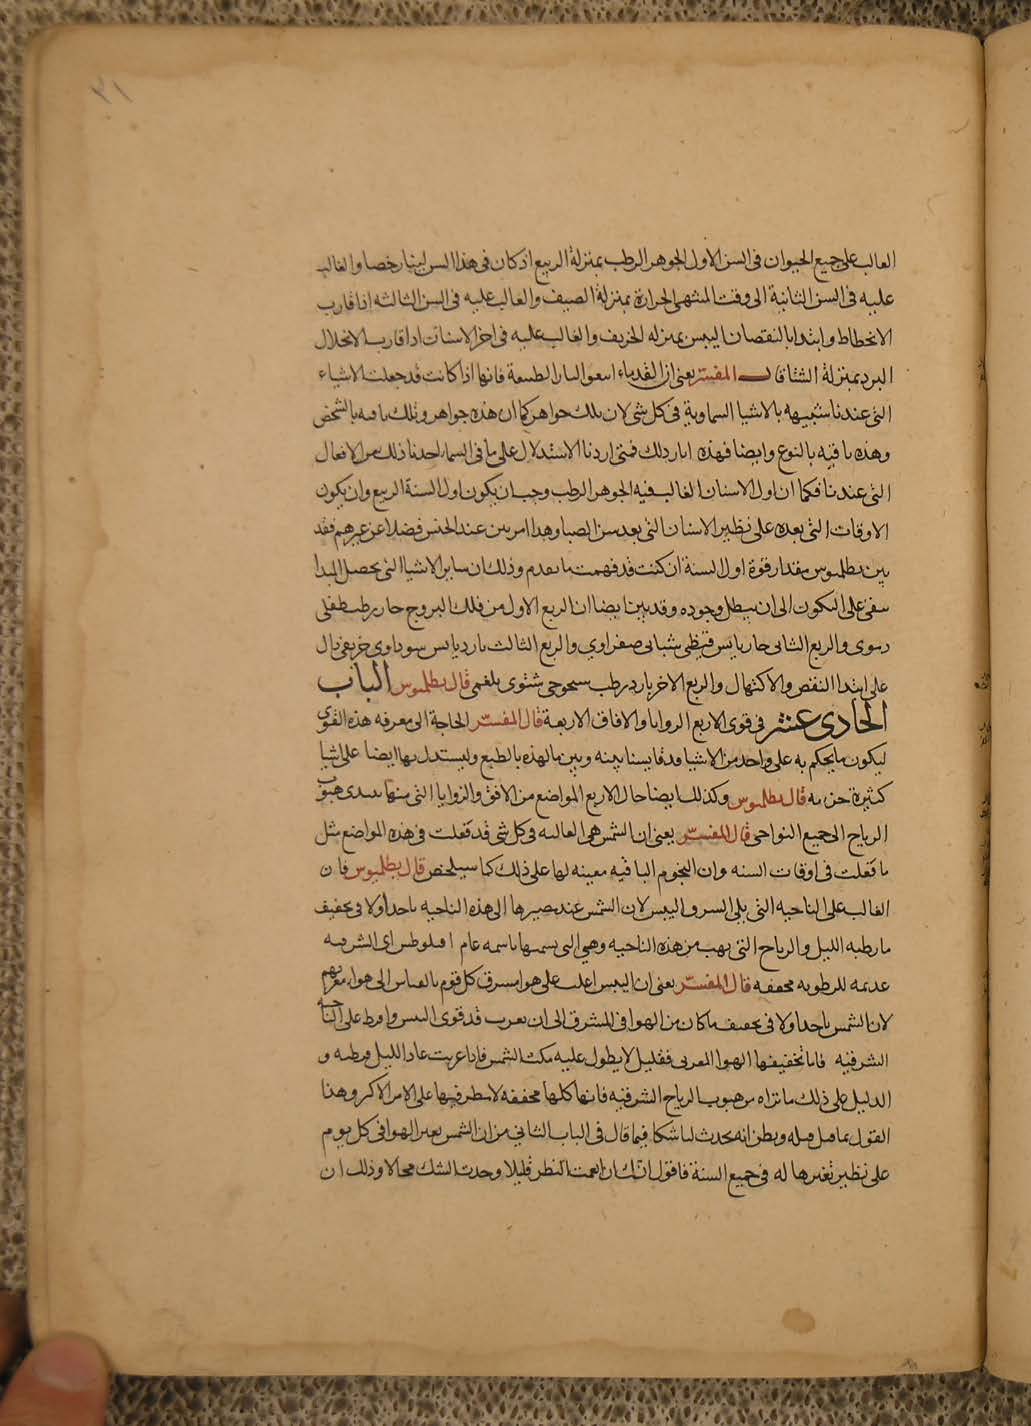 الغالب على جميع الحيوان فى السن الاول الجوهر الرطب بمنزلة الربيع اذ كان فى هذا السن لينا رخصا والغالب
عليه فى السن الثانية الى وقت المنتهى الحرارة بمنزلة الصيف والغالب عليه فى السن الثالثه اذا قارب
الانحطاط وابتدا بالنقصان اليبس بمنزله الخريف والغالب عليه فى اخر الاسنان اذا قارب الانحلال
البرد بمنزلة الشتا قال المفسر يعنى ان القدماء الطبيعة فانها اذا كانت قد جعلت الاشياء
التى عندنا شبيهه بالاشيا السماوية فى كل شى لان تلك جواهر كما ان هذه جواهر وتلك باقيه بالشخص
وهذه باقيه بالنوع وايضا فهذه اثار تلك فمتى اردنا الاستدلال على ما فى السما اخذنا ذلك من الافعال
التى عندنا فكما ان اول الاسنان الغالب فيه الجوهر الرطب وجب ان يكون اول السنة الربيع وان يكون
الاوقات التى بعده على نظير الاسنان التى بعد سن الصبا وهذا امر بين عند الحس فضلا عن غيرهم فقد
بين بطلميوس مقدار قوة اول السنة ان كنت قد فهمت ما تقدم وذلك ان ساير الاشيا التى يحصل المبدا
على التكون الى ان يبطل وجوده وقد بين ايضا ان الربع الاول من فلك البروج حار رطب طفلى
دموى والربع الثانى حار يابس قيظى شبابى صفراوى والربع الثالث بارد يابس سوداوى خريفى دال
على ابتدا النقص والاكتهال والربع الاخر بارد رطب شيخوخى شتوى بلغمى قال بطلميوس الباب
الحادى عشر فى قوى الاربع الزوايا والافاق الاربعة قال المفسر الحاجة الى معرفه هذه القوى
ليكون ما يحكم به على واحد من الاشيا قد قايسنا بينه وبين ما لهذه بالطبع وليستدل بها ايضا على اشيا
كثيرة قال بطلميوس وكذلك ايضا حال الاربع المواضع من الافق والزوايا التى منها تبتدى هبوب
الرياح الى جميع النواحى قال المفسر يعنى ان الشمس هى الغالبه فى كل شى قد فعلت فى هذه المواضع مثل
ما فعلت فى اوقات السنه وان النجوم الباقيه معينه لها على ذلك كما سيلخص قال بطلميوس فان
الغالب على الناحيه التى يلى الشرق اليبس لان الشمس عند مصيرها الى هذه الناحيه ياخذ اولا فى تجفيف
ما رطبه الليل والرياح التى تهب من هذه الناحيه وهى التى نسميها باسمه عام افيلوطس اى الشرقيه
عديمه للرطوبه مجففه قال المفسر يعنى ان اليبس اغلب على هوا مشرق كل قوم بالقياس الى هواء مغربهم
لان الشمس ياخذ اولا فى تجفيف ما كان من الهوا فى المشرق الى ان يغرب قد قوى اليبس وافرط على الناحيه
الشرقيه فاما تجفيفها الهوا المغربى فقليل لا يطول عليه مكث الشمس فاذا غربت عاد الليل فرطبه و
الدليل على ذلك ما نراه من هبوب الرياح الشرقيه فانها كلها مجففه لا مطر فيها على الامر الاكثر وهذا
القول مما قبل قبله ويظن انه يحدث لنا شكا فيما قال فى الباب الثانى من ان الشمس يغير الهوا فى كل يوم
على نظير تغيرها له فى جميع السنة فاقول انك ان انعمت النظر قليلا وجدت الشك محالا وذلك ان